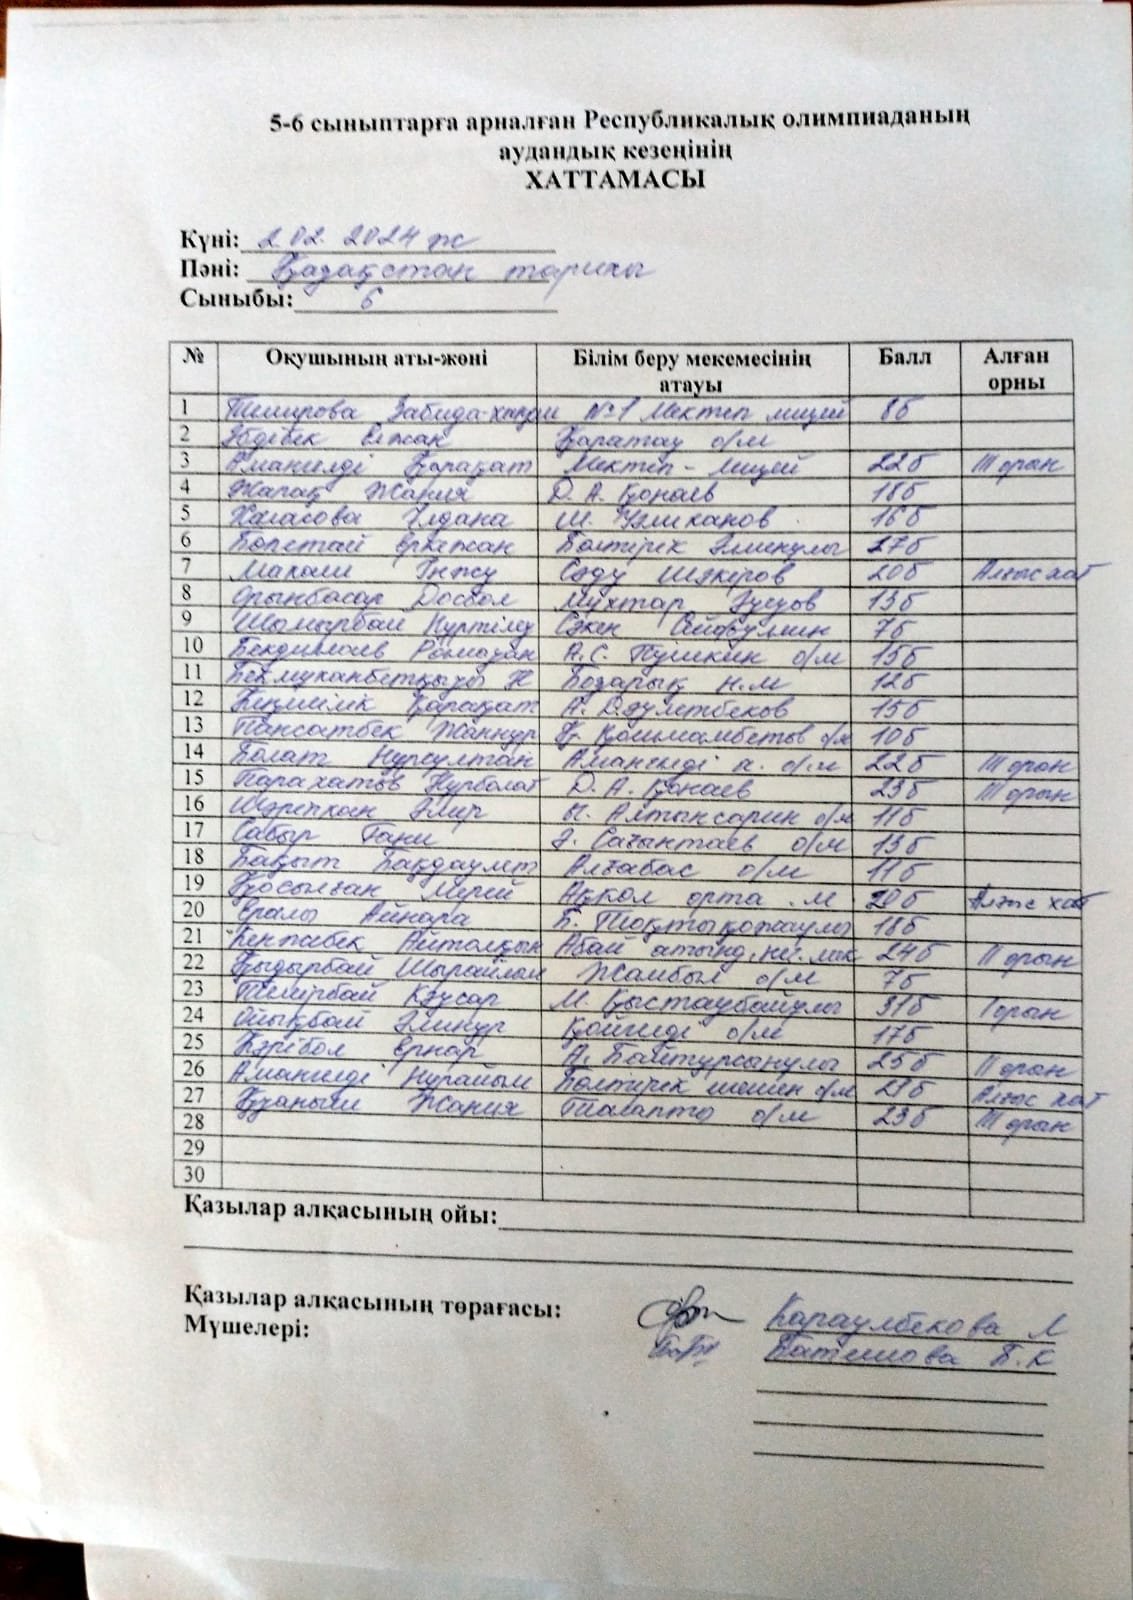 5-6 сыныптарға арналған Республикалық олимпиаданың
аудандық кезеңінің
ХАТТАМАСЫ
Күні: 2.02. 2024 ж
Пәні: Қазақстан тарихы
Сыныбы: 6
№ Оқушының аты-жөні Білім беру мекемесінің атауы Балл Алған орны
1 Темирова Забида-ханым №1 Мектеп лицей 8б
2 Әбдібек Еркжан Қаратау о/м
3 Амангелді Қарақат Мектеп-Лицей 22б III орын
4 Жарақ Жания Д. А. Қонаев 18б
5 Халасова Ұлдана Ш. Уәлиханов 16б
6 Бопетай Еркежан Бөлтірік Әлменұлы 27б
7 Махами Інжу Сәду Шәкіров 20б Алғыс хат
8 Орынбасар Досбол Мұхтар Әуезов 13б
9 Шалғырбай Нүртілеу Сәкен Сейфуллин 7б
10 Бекдиллаев Рамазан А.С. Пушкин о/м 15б
11 Бекмуханбетқызы Н Бозарық н.м 12б
12 Қарақат А. Дәулетбеков 15б
13 Пансатбек Жаннұр Қ. Қойшмамбетов о/м 10б
14 Болат Нұрсұлтан Амангелді а. о/м 22б III орын
15 Парахатов Нұрболат Д. А. Қонаев 23б III орын
16 Шәріпхан Әмір Ы. Алтынсарин о/м 11б
17 Сабыр Гани Ә. Сағынтаев о/м 13б
18 Бақыт Бақдәулет Алғабас о/м 11б
19 Қосылған Мерей Ақкөл орта .м 20б Алғыс хат
20 Ералы Айнара Б. Тоқтықожаұлы 18б
21 Кенжебек Айтолқын Абай атынд. 24б II орын
22 Қыдырбай Шырайлым Жамбыл о/м 7б
23 Темірбай Кәусар М. Қыстаубайұлы 31б I орын
24 Ойықбай Әлинұр Қойгелді о/м 17б
25 Кәрібол Ернар А. Байтурсынулы 25б II орын
26 Амангелді Нұрайым Бөлтірік шешен о/м 21б Алғыс хат
27 Қуаныш Жания Талапты о/м 23б III орын
28
29
30
Қазылар алқасының ойы:
Қазылар алқасының төрағасы: Қараулбекова Л
Мүшелері: Батешова Б.К